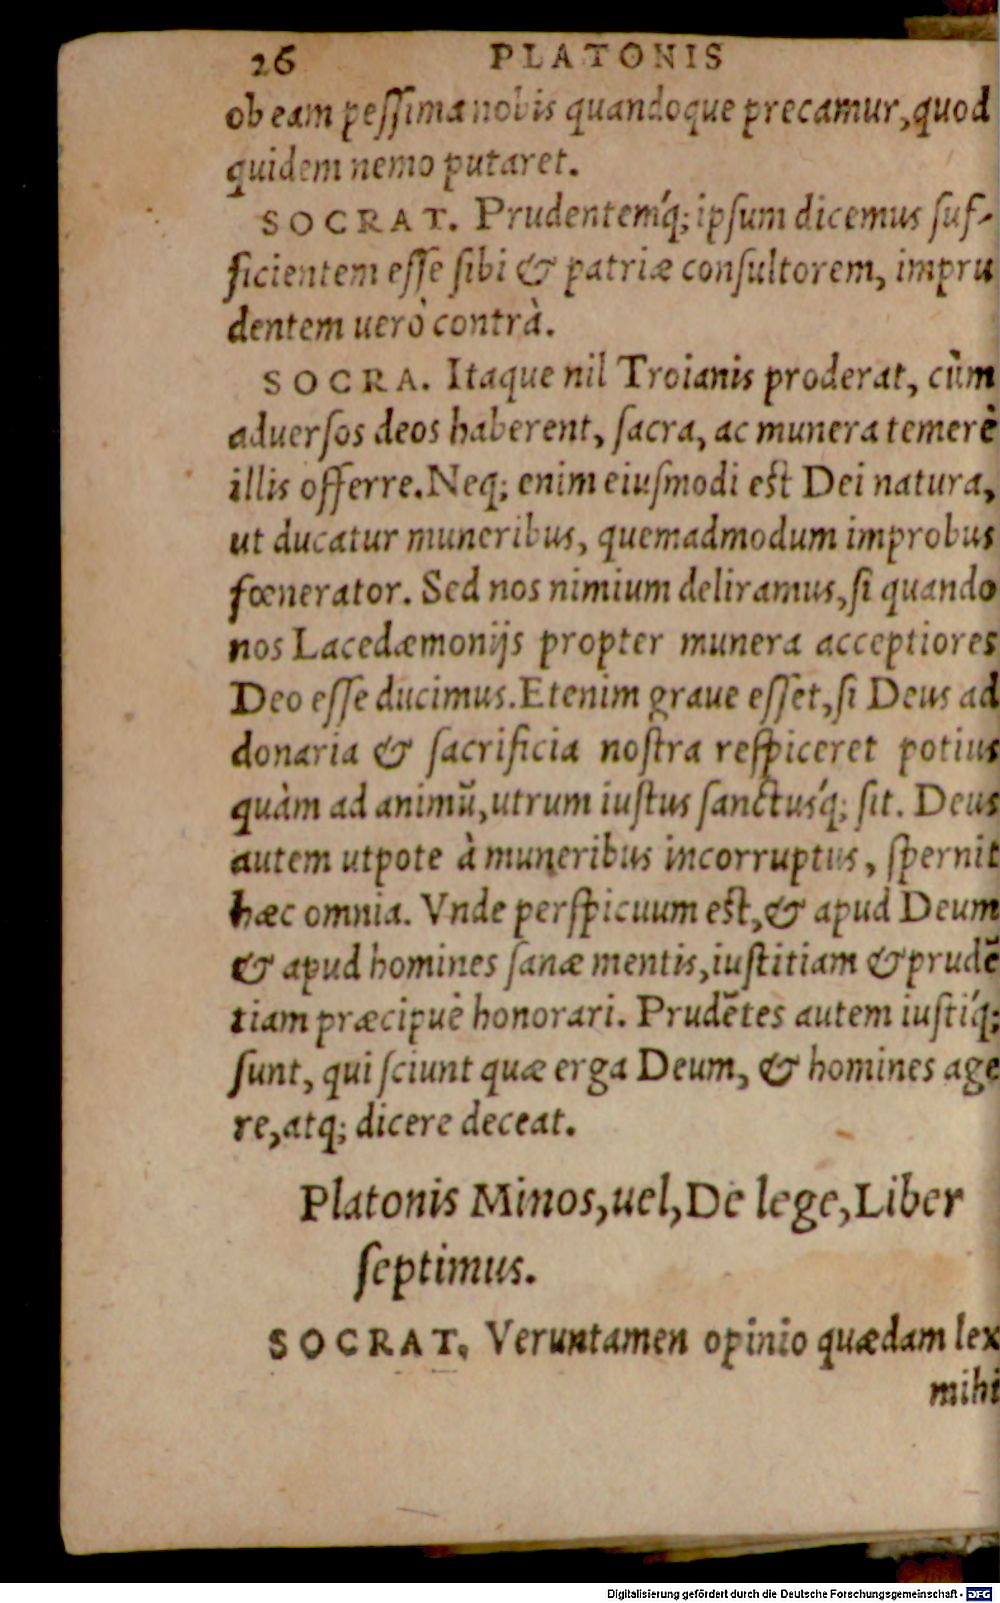 26 PLATONIS
ob eam peſſima nobis quandoque precamur, quod
quidem nemo putaret.
SOCRAT. Prudentemq́; ipſum dicemus ſuf-
ficientem eſſe ſibi & patriæ conſultorem, impru
dentem uerò contrà.
SOCRA. Itaque nil Troianis proderat, cùm
aduerſos deos haberent, ſacra, ac munera temerè
illis offerre. Neq; enim eiuſmodi est Dei natura,
ut ducatur muneribus, quemadmodum improbus
fœnerator. Sed nos nimium deliramus, ſi quando
nos Lacedæmonijs propter munera acceptiores
Deo eſſe ducimus. Etenim graue eſſet, ſi Deus ad
donaria & ſacrificia noſtra reſpiceret potius
quàm ad animū, utrum iuſtus ſanctusq́; ſit. Deus
autem utpote à muneribus incorruptus, ſpernit
hæc omnia. Vnde perſpicuum est, & apud Deum
& apud homines ſanæ mentis, iuſtitiam & prudē
tiam præcipuè honorari. Prudētes autem iuſtiq́;
ſunt, qui ſciunt quæ erga Deum, & homines age
re, atq; dicere deceat.
Platonis Minos, uel, De lege, Liber
ſeptimus.
SOCRAT. Veruntamen opinio quædam lex
mihi
Digitalisierung gefördert durch die Deutsche Forschungsgemeinschaft - DFG